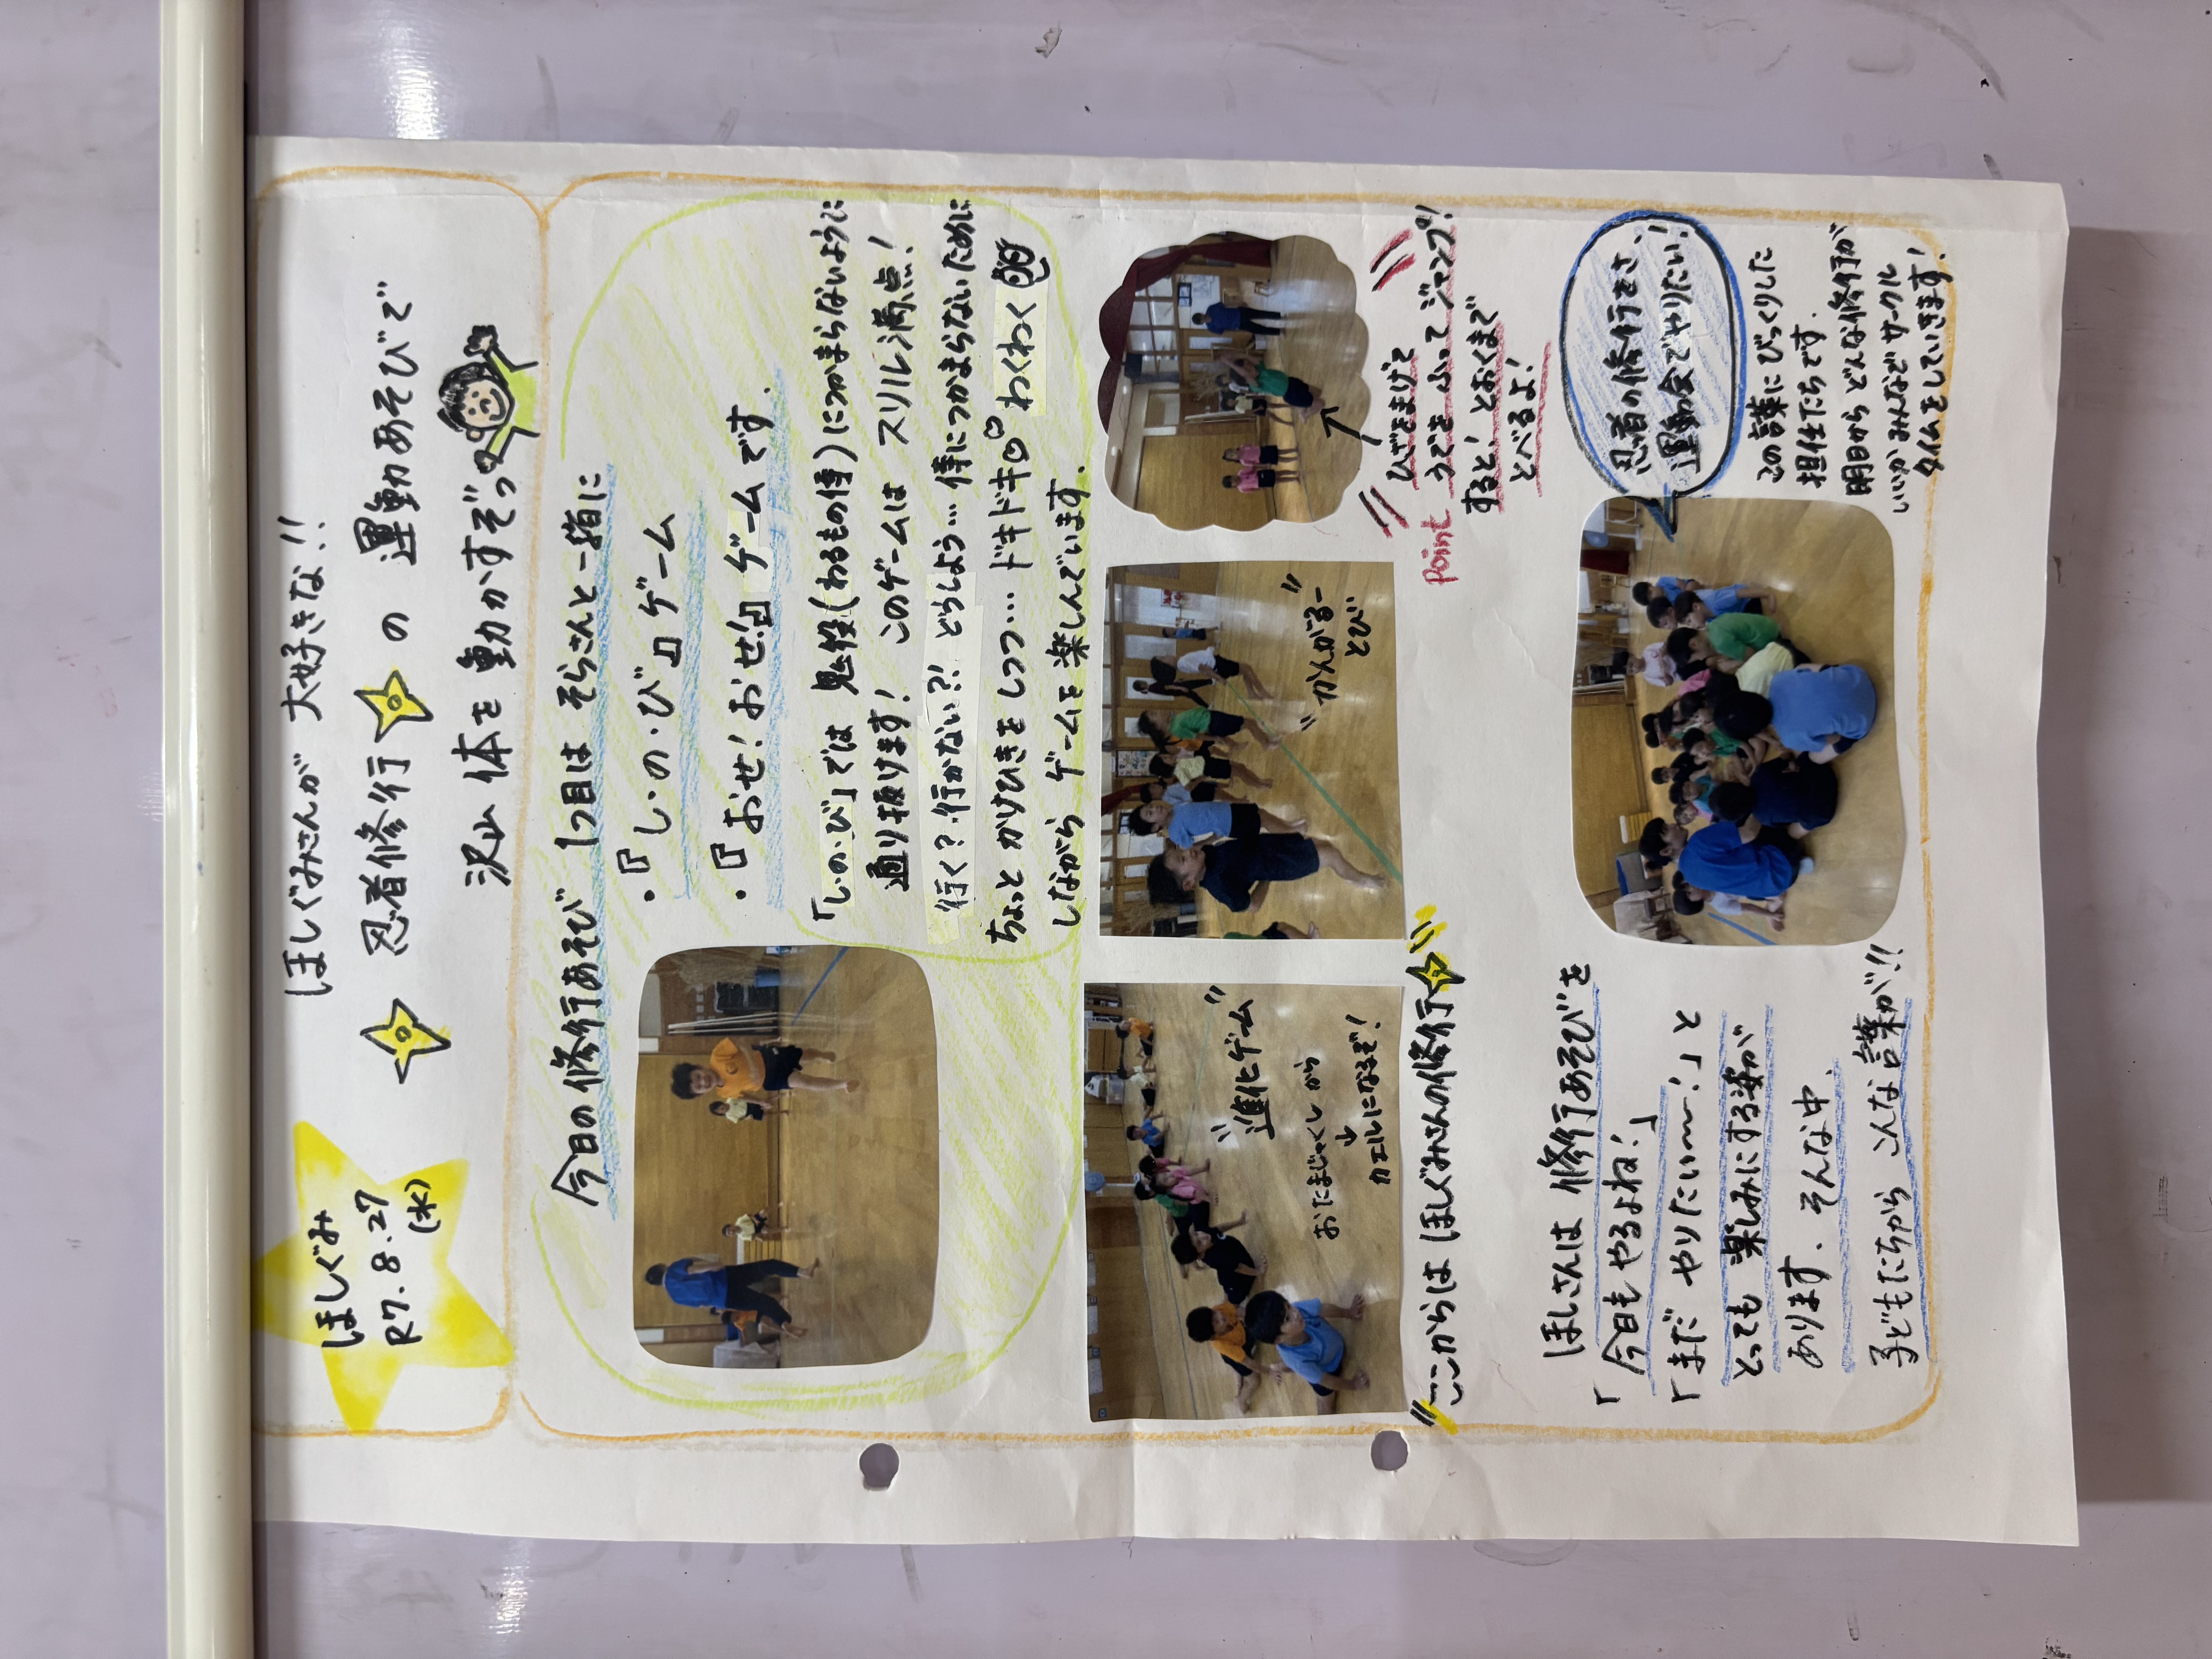 ほしぐみ
R7.8.27
(水)
ほしぐみさんが 大好きな!!
忍者修行 の 運動あそびで
沢山 体を 動かすぞっ
今日の修行あそび 1つ目は そらさんと一緒に
・『し・の・び』ゲーム
・『おせ!おせ!』ゲームです.
「し・の・び」では 鬼役(わるもの侍)につかまらないように
通り抜けます! このゲームは スリル満点!
行く?行かない?! どうしよう… 侍につかまらないために
ちょっと かけひきをしつつ… ドキドキ わくわく
しながら ゲームを楽しんでいます.
"進化ゲーム"
おたまじゃくしから
↓
カエルになるぞ!
"かんがるー
とび"
"ここからは ほしぐみさんの修行
Point ひざをまげて
うでを ふって ジャンプ!
すると! とおくまで
とべるよ!
ほしさんは 修行あそびを
「今日もやるよね!」
「まだ やりたい〜!」と
とっても 楽しみにする姿が
あります. そんな中、
子どもたちから こんな 言葉が!!
忍者の修行をさ、
運動会でやりたい!
この言葉にびっくりした
担任たちです.
明日から どんな修行が
いいか みんなで サークル
タイムをしていきます!